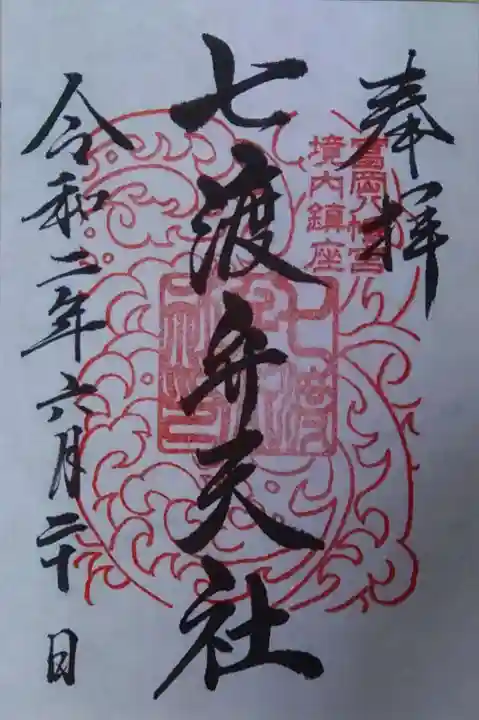 奉拝
富岡八幡宮
境内鎮座
七渡弁天社
令和二年六月二十日